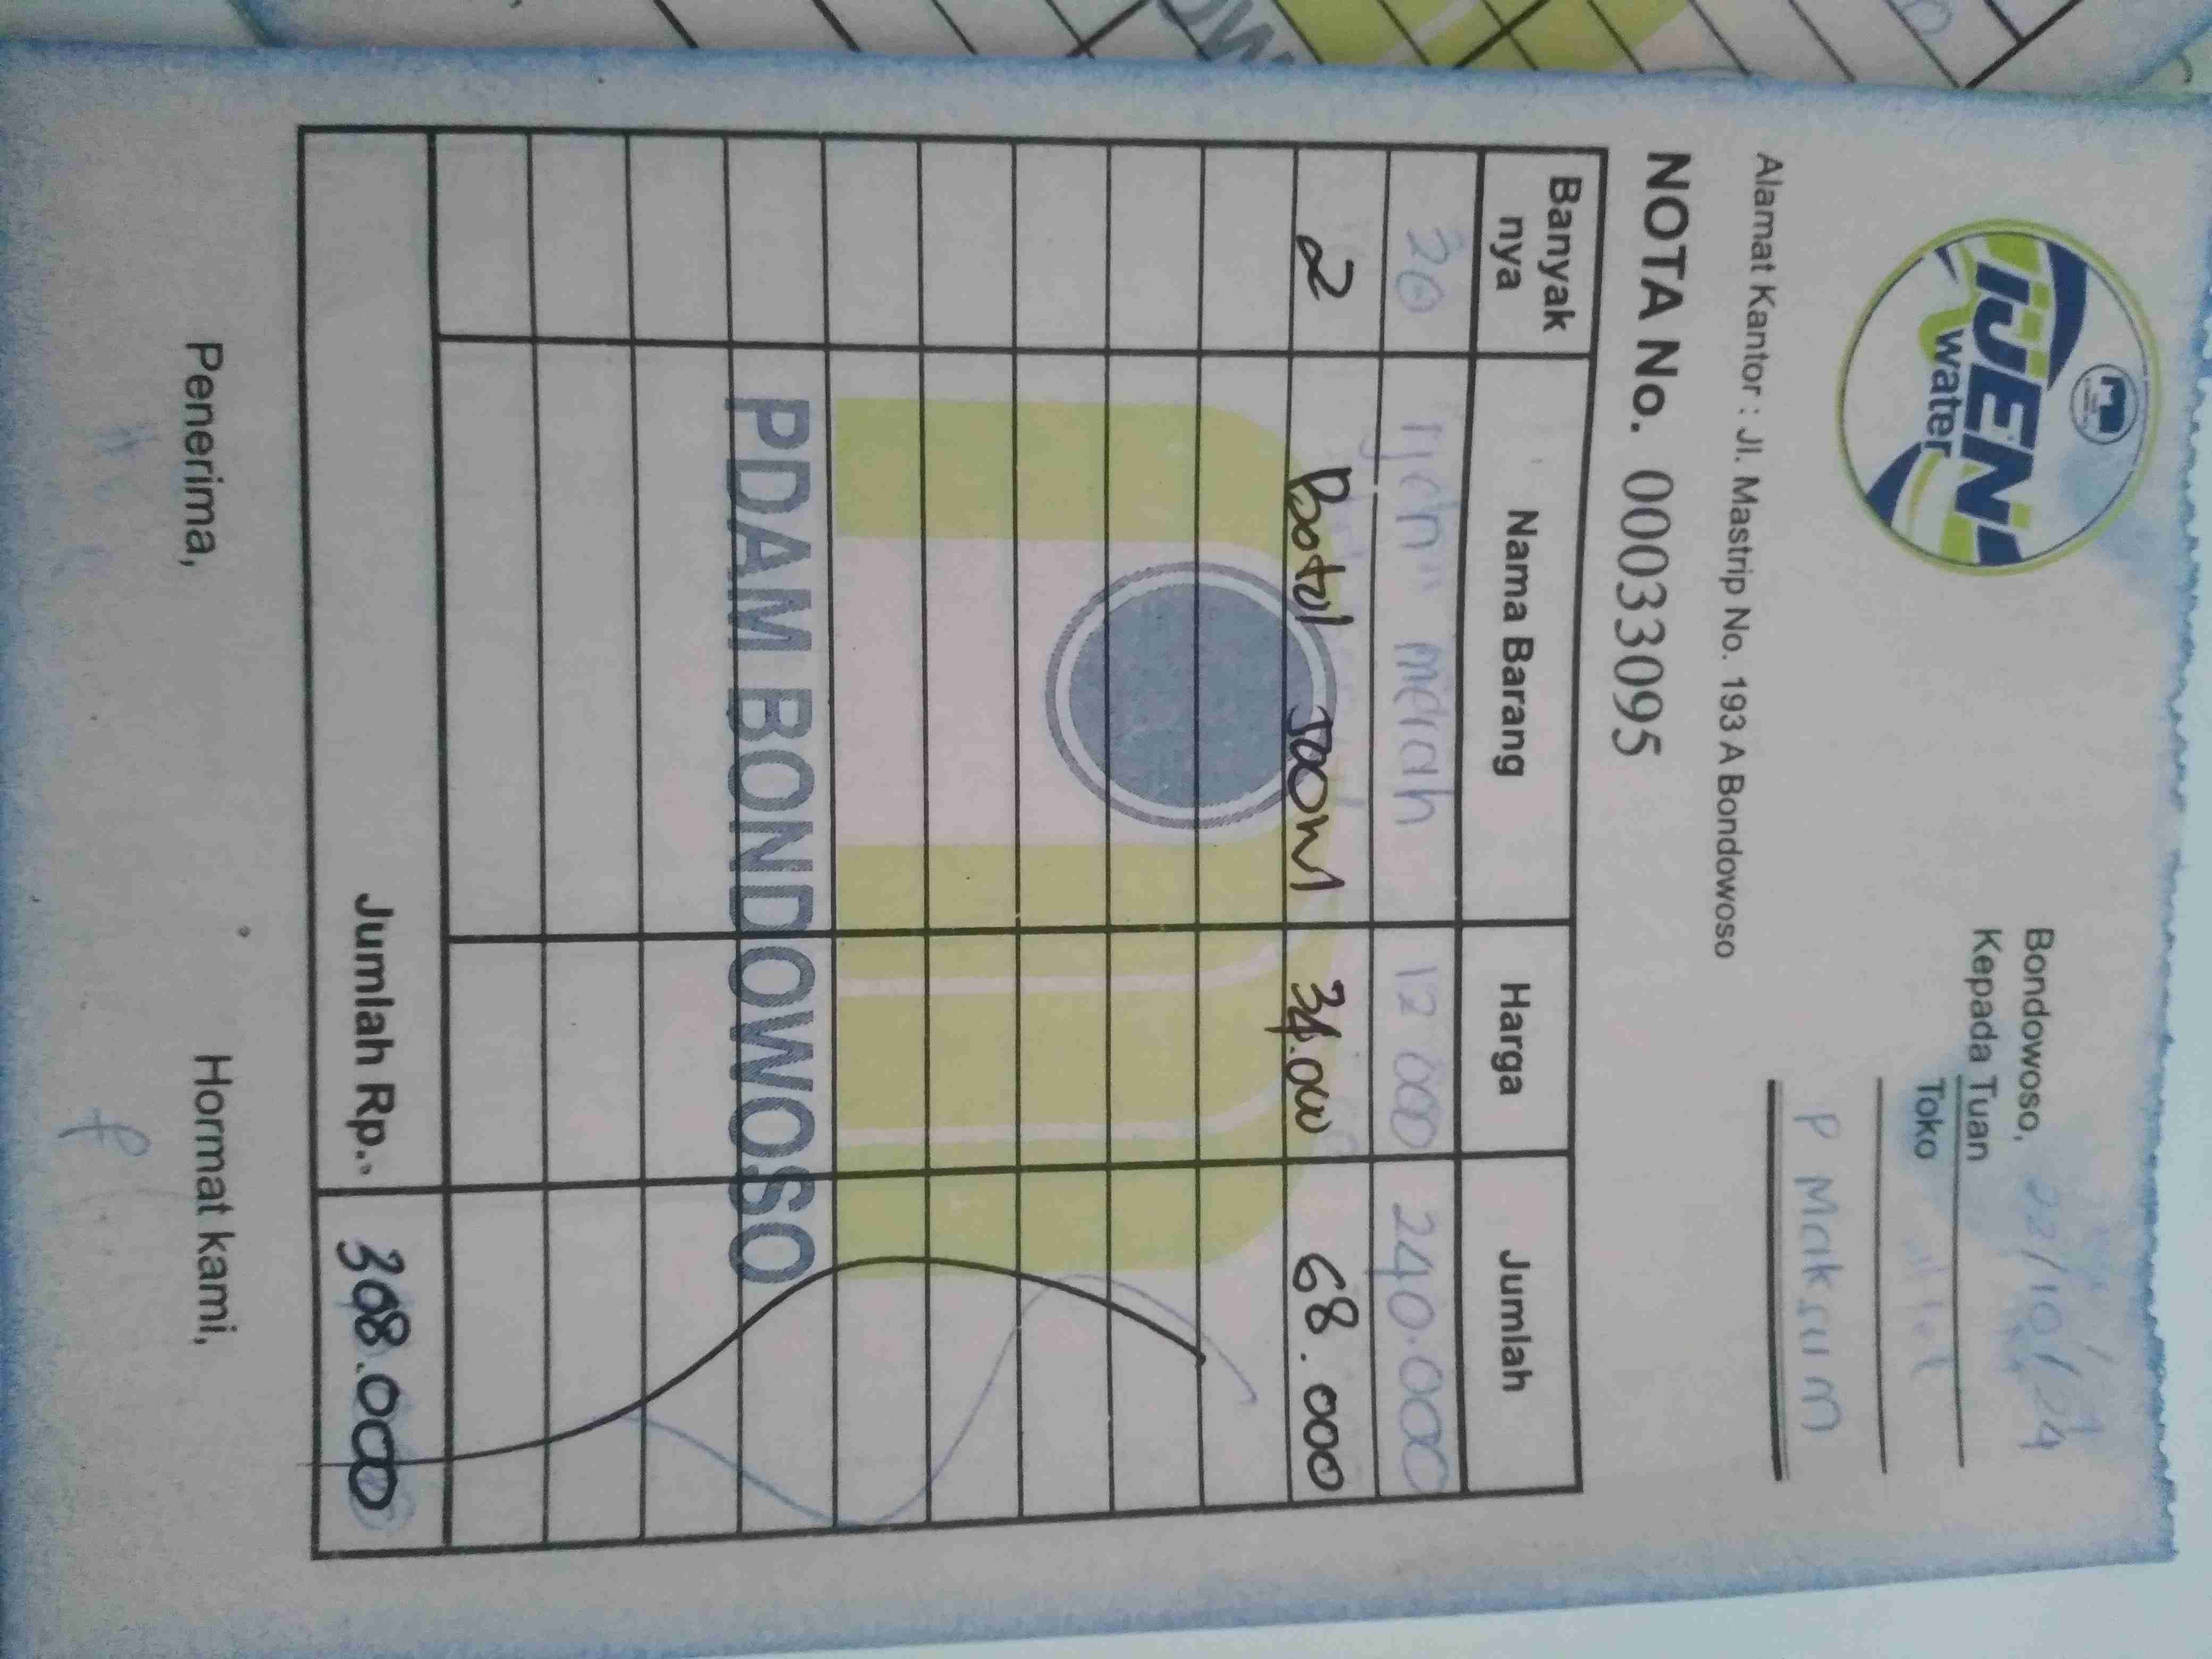 IJEN
water
Bondowoso, 22/10/24
Kepada Tuan
Toko
P Maksum
Alamat Kantor : Jl. Mastrip No. 193 A Bondowoso
NOTA No. 00033095
Banyak nya Nama Barang Harga Jumlah
20 Ijen merah 12 000 240.000
2 Botol 500ml 34.000 68.000
PDAM BONDOWOSO
Jumlah Rp.. 308.000
Penerima, Hormat kami,